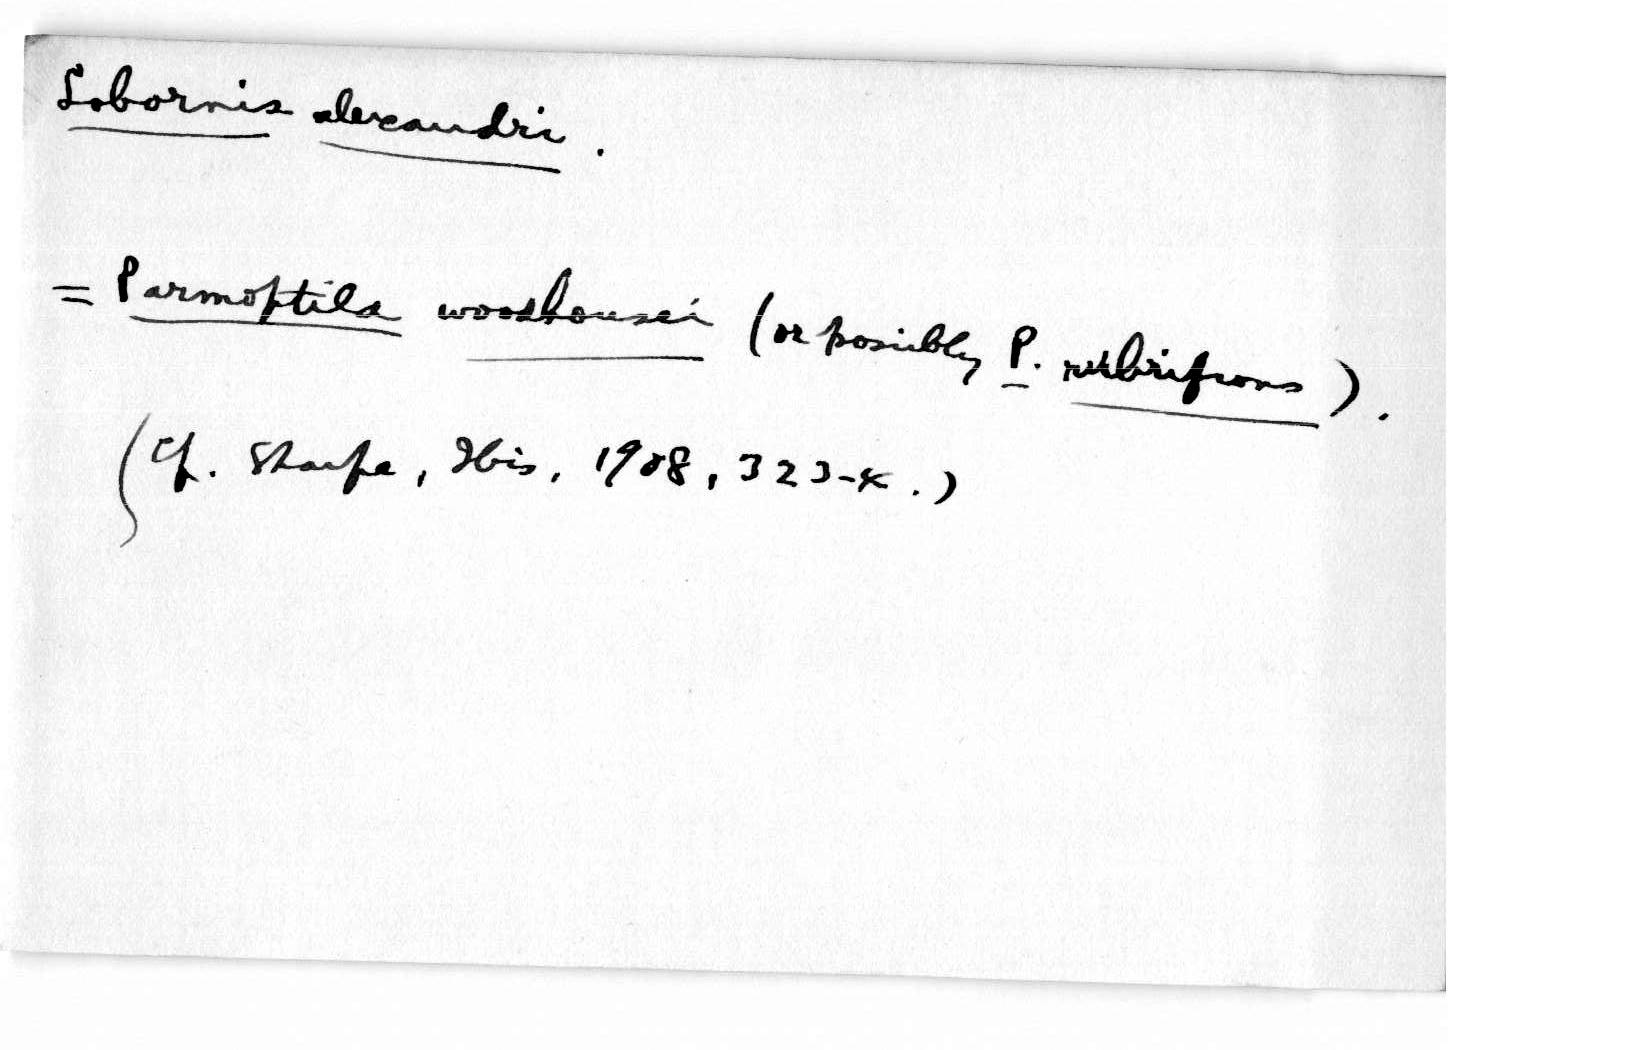 Lobornis alexandri.
= Parmoptila woodhousei (or possibly P. rubrifrons).
(Cf. Sharpe, Ibis, 1908, 323-4.)